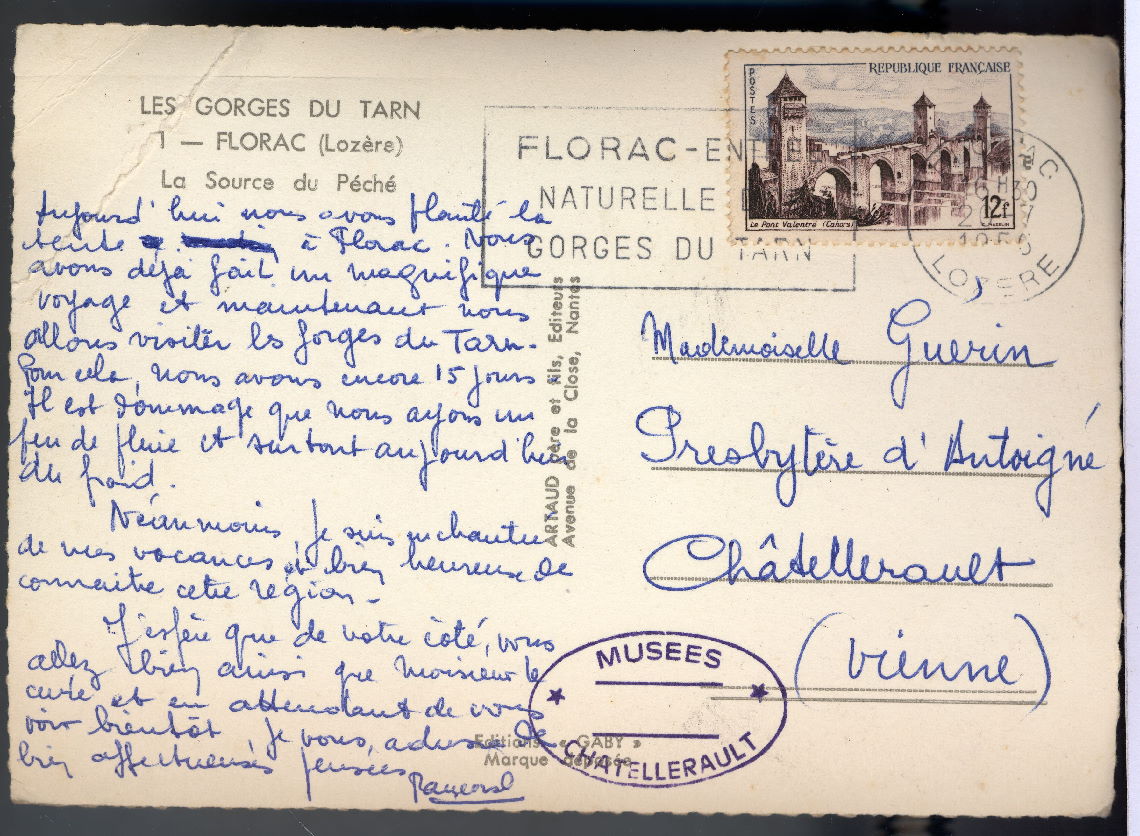 LES GORGES DU TARN
1 — FLORAC (Lozère)
La Source du Péché
Aujourd'hui nous avons planté la
tente à Florac. Nous
avons déjà fait un magnifique
voyage et maintenant nous
allons visiter les gorges du Tarn.
Pour cela, nous avons encore 15 jours
Il est dommage que nous ayons un
peu de pluie et surtout aujourd'hui
du froid.
Néanmoins je suis enchantée
de mes vacances et bien heureuse de
connaitre cette région.
J'espère que de votre côté, vous
allez bien ainsi que Monsieur le
curé et en attendant de vous
voir bientôt je vous adresse de
bien affectueuses pensées
ARTAUD père et fils, Editeurs
Avenue de la Close, Nantes
Editions « GABY »
Marque déposée
FLORAC-ENTRE
NATURELLE
GORGES DU TARN
POSTES
REPUBLIQUE FRANÇAISE
Le Pont Valentre (Cahors)
12f
AC
H30
LOZERE
Mademoiselle Guerin
Presbytère d'Antoigné
Châtellerault
(Vienne)
MUSEES
CHATELLERAULT